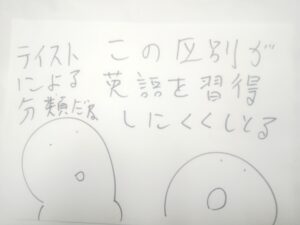 テイストによる分類だね
この区別が
英語を習得
しにくくしとる